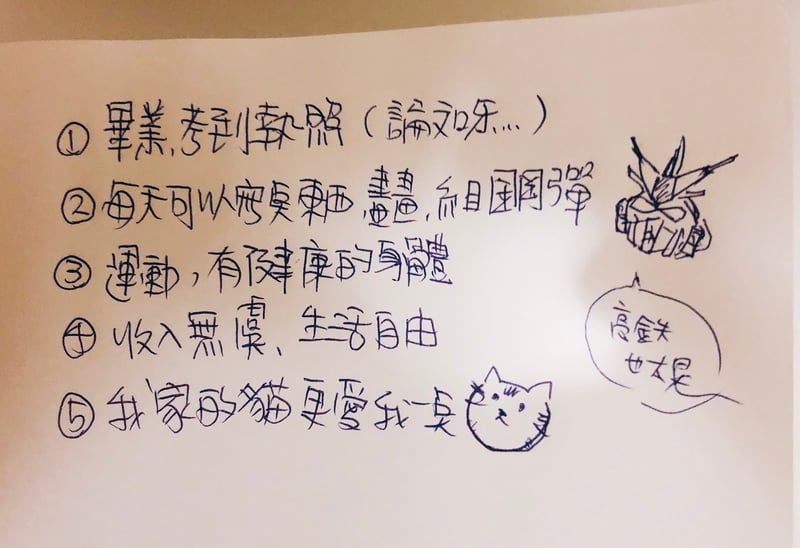 ① 畢業,考到執照(論文呀...)
② 每天可以寫點東西,畫畫,組鋼彈
③ 運動,有健康的身體
④ 收入無虞、生活自由
⑤ 我家的貓更愛我一點
高鐵
也太晃